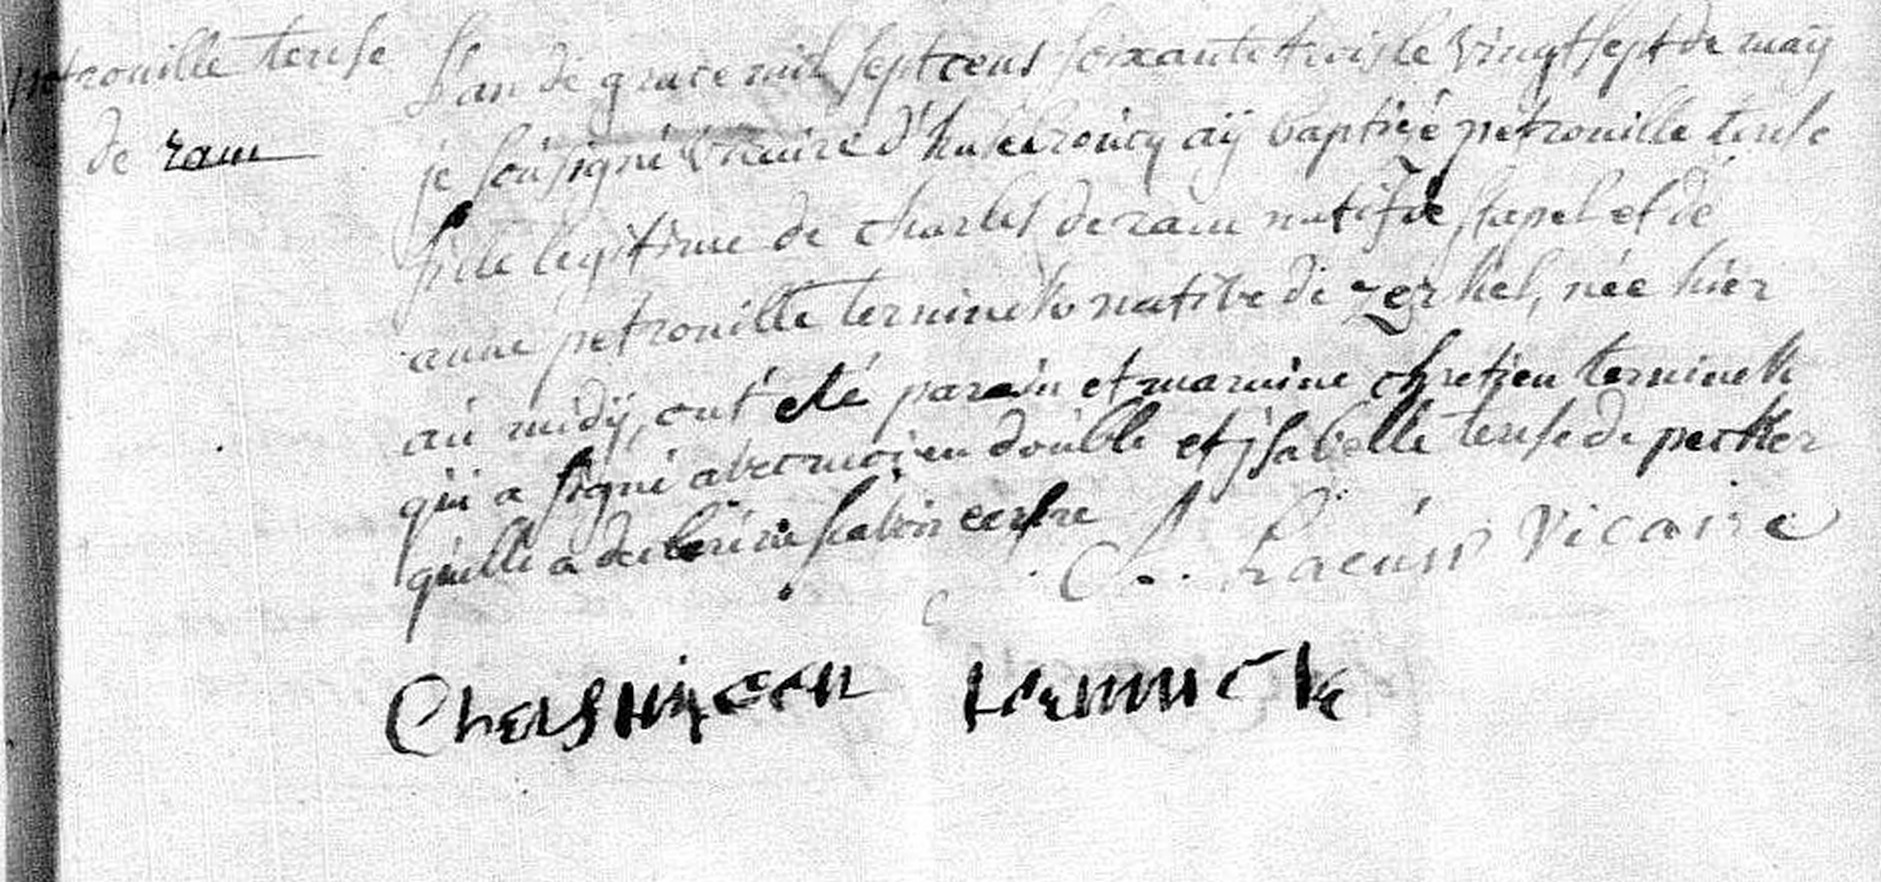 petrouille terese
de ram
L'an de grace mil septcens soixante trois le vingt sept de maÿ
je sousigné vicaire d' aÿ baptisé petrouille terese
fille legitime de charles de ram natif de stapel et de
anne petrouille terninck native de zerkel, née hier
au midÿ, ont eté parain et maraine chretien terninck
qui a signé avec moi en double et jsabelle terese de pecker
quelle a declaré ne savoir ecrire
vicaire